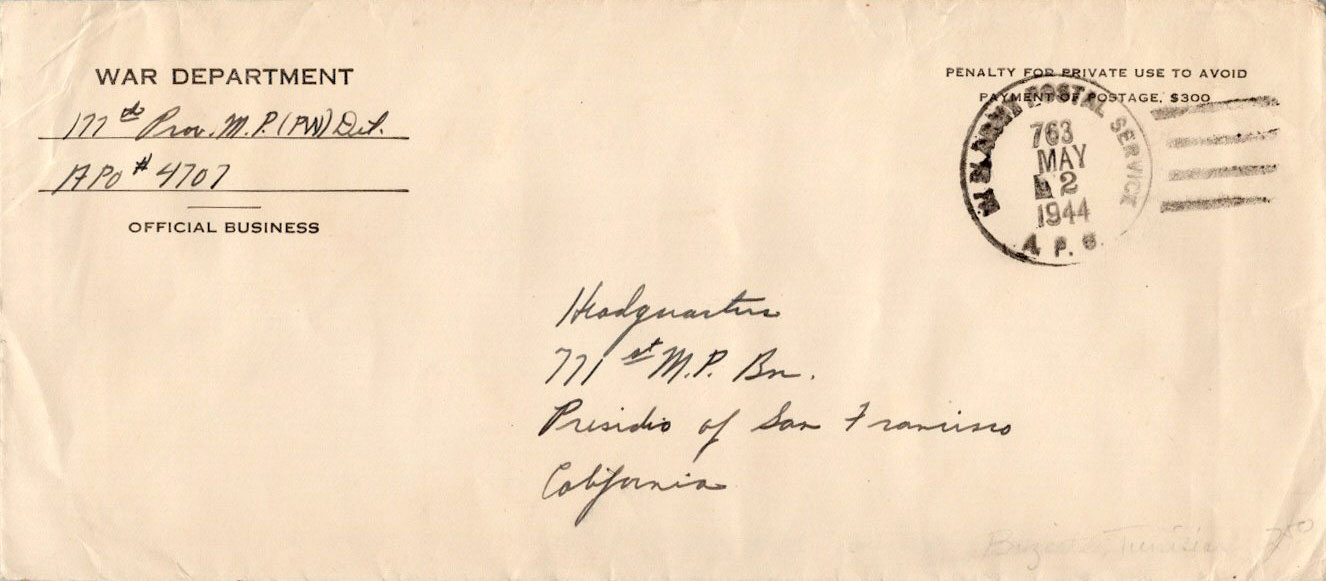 WAR DEPARTMENT
177th Prov. M.P. (PW) Det.
APO # 4707
OFFICIAL BUSINESS
PENALTY FOR PRIVATE USE TO AVOID
PAYMENT OF POSTAGE, $300
U.S. ARMY POSTAL SERVICE
763
MAY
2
1944
A. P. O.
Headquarters
771st M.P. Bn.
Presidio of San Francisco
California
Tunisia